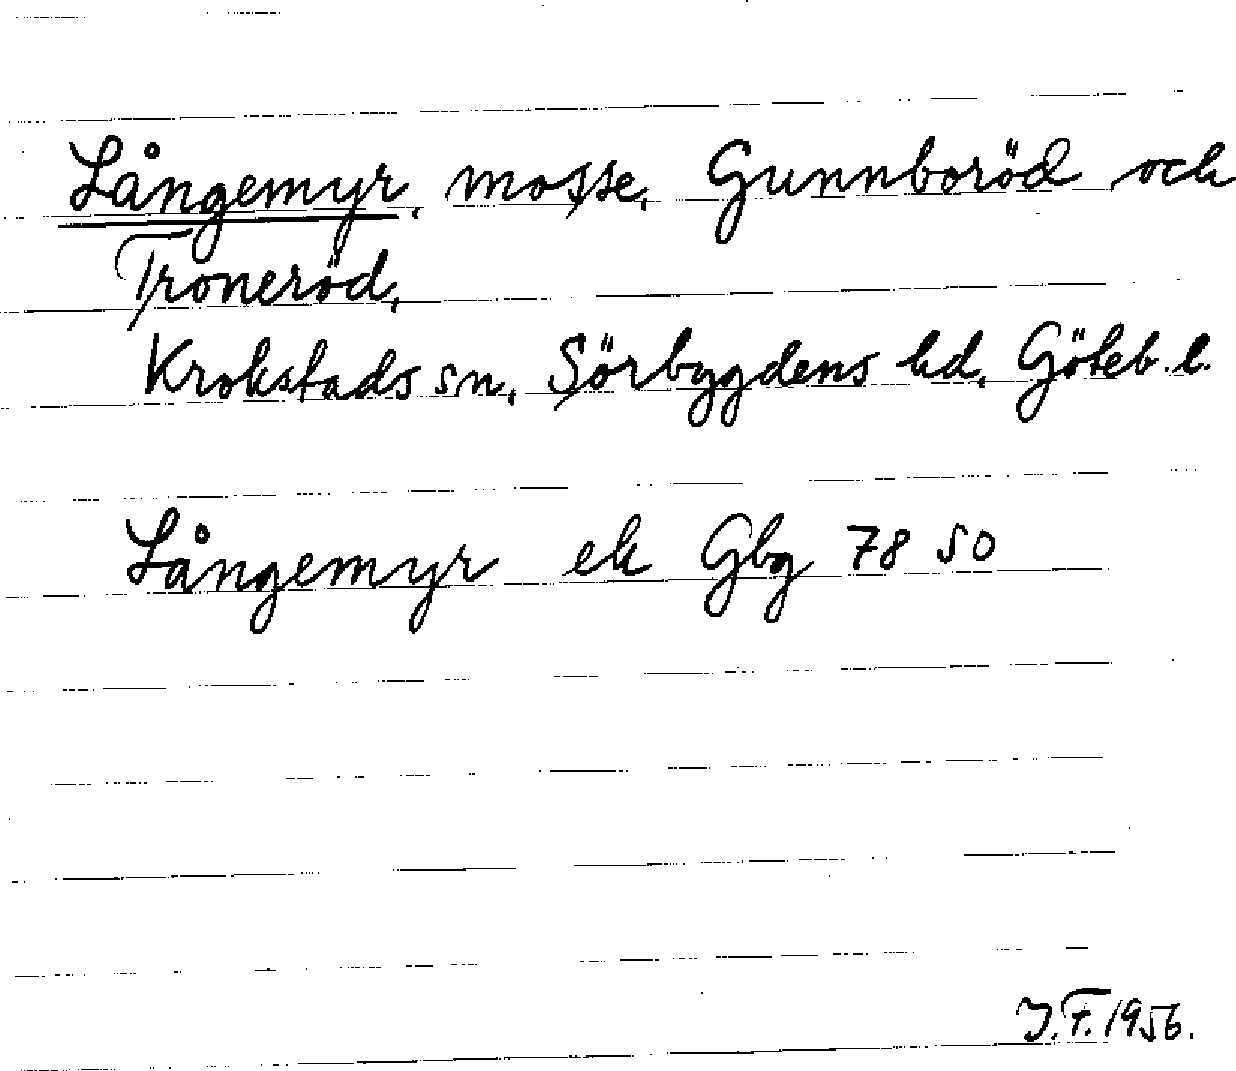 Långemyr, mosse, Gunnboröd och
Troneröd,
Krokstads sn, Sörbygdens hd, Göteb. l.
Långemyr ek Gbg 78 50
J.F. 1956.